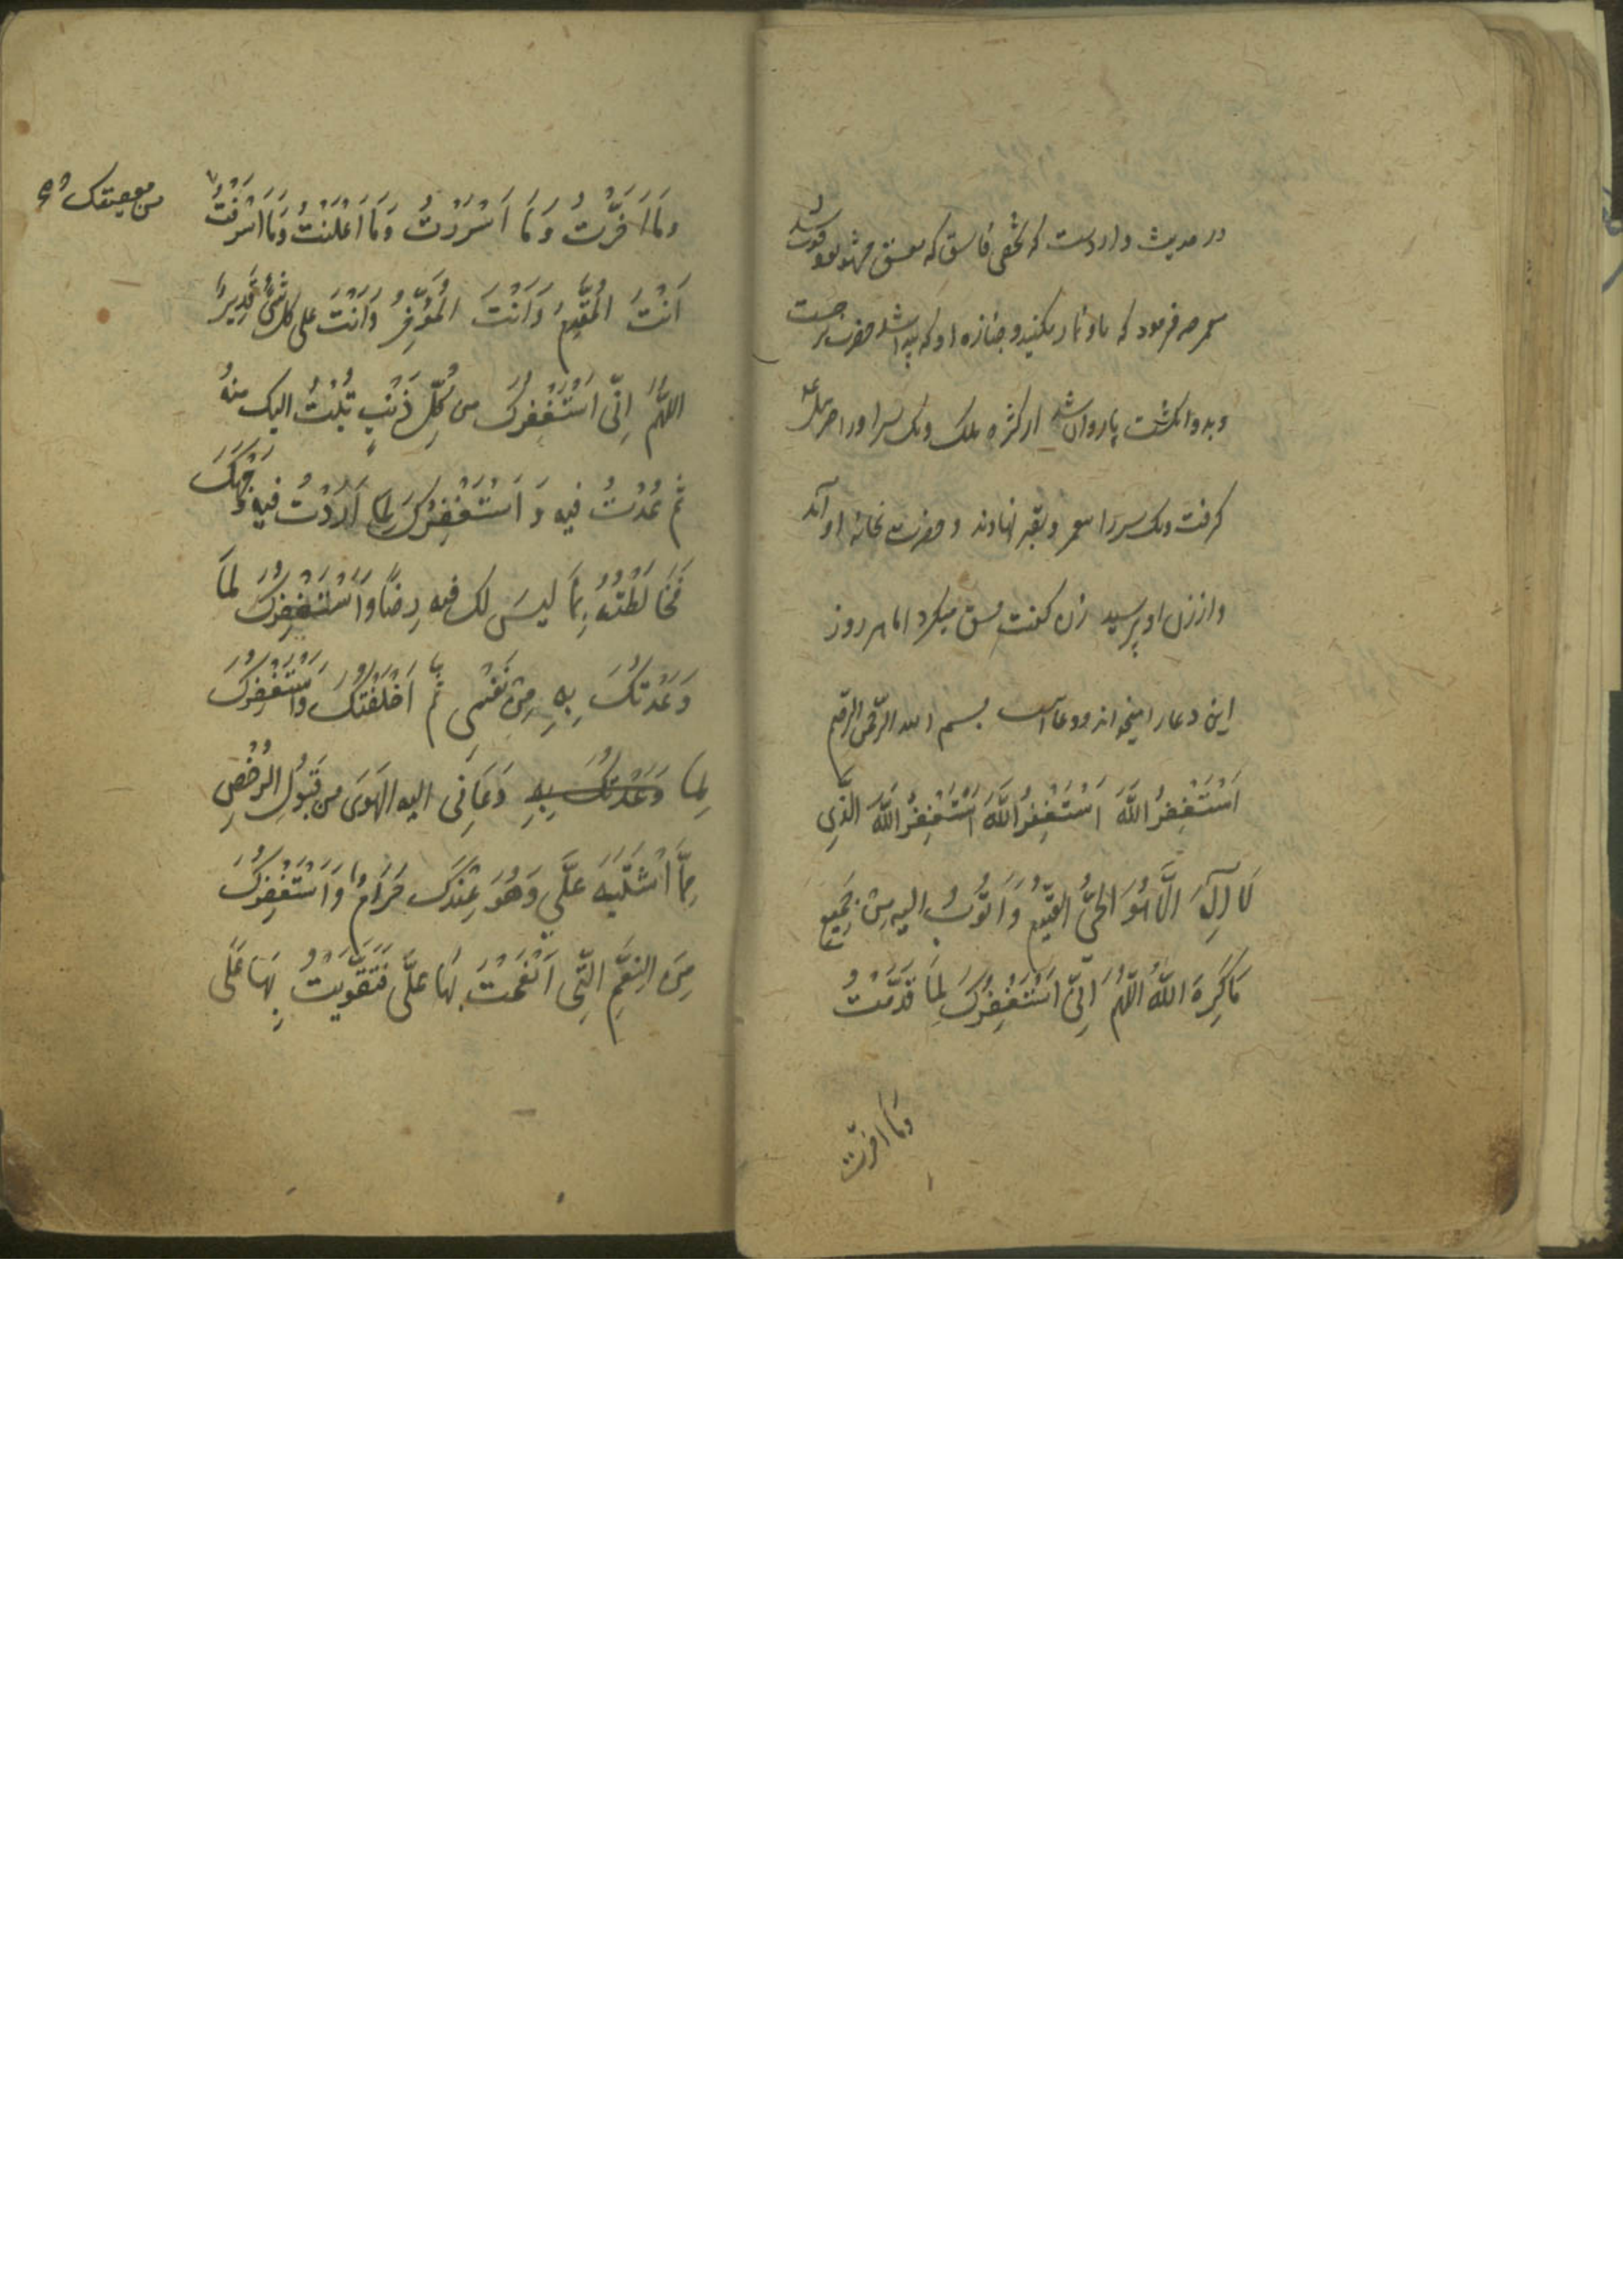 در حدیث وارد است که شخصی فاسق که بفسق مشهور بود فوت شد
فرمود که باو نماز نکنید و جنازه او که پیدا شد حضرت برجست
و بدو انکشت پا روان شد از کثره ملک و یک سر او را جبرئیل
کرفت و یک سر را پیغمبر و بقبر نهادند و حضرت بخانه او آمد
و از زن او پرسید زن کفت فسق میکرد اما هر روز
این دعا را میخواند و دعا آست بسم الله الرّحمن الرّحیم
اَسْتَغْفِرُ اللَّهَ اَسْتَغْفِرُ اللَّهَ اَسْتَغْفِرُ اللَّهَ الَّذِی
لَا اِلٰهَ اِلَّا هُوَ الْحَیُّ القَیّومُ وَ اَتُوْبُ الیهِ مِنْ جَمِیعِ
مَا کَرِهَ اللّٰهُ اللّٰهُمَّ اِنِّی اَسْتَغْفِرُکَ لِمَا قَدَّمْتُ
وَمَا اخّرت
وَمَا اَخَّرْتُ وَمَا اَسْرَرْتُ وَمَا اَعْلَنْتُ وَمَا اَسْرَفْتُ
اَنْتَ المُقَدِّمُ وَاَنْتَ المُؤَخِّرُ وَاَنْتَ علی کل شَیْءٍ قَدِیرٌ
اللّٰهُمَّ اِنِّی اَسْتَغْفِرُکَ من کُلِّ ذَنْبٍ تُبْتُ الیک منهُ
ثُمَّ عُدْتُ فیهِ وَ اَسْتَغْفِرُکَ لِمَا اَرَدْتُ فیهِ وَجْهَکَ
فَخَالَطْتُهُ بِمَا لَیسَ لک فیهِ رِضًا وَاَسْتَغْفِرُکَ لِمَا
وَعَدْتُکَ بِهِ مِنْ نَفْسِی ثُمَّ اَخْلَفْتُکَ وَاَسْتَغْفِرُکَ
لِمَا وَعَدْتُکَ بِهِ دَعَانِی الیه الهَوَی من قَبُولِ الرُّخَصِ
مِمَّا اَشْتَبَهَ عَلَیَّ وَهُوَ عِنْدَکَ حَرَامٌ وَاَسْتَغْفِرُکَ
مِنَ النِعَمِ الَّتِی اَنْعَمْتَ بِهَا عَلَیَّ فَتَقَوَّیْتُ بِهَا عَلَی
من معصیتک